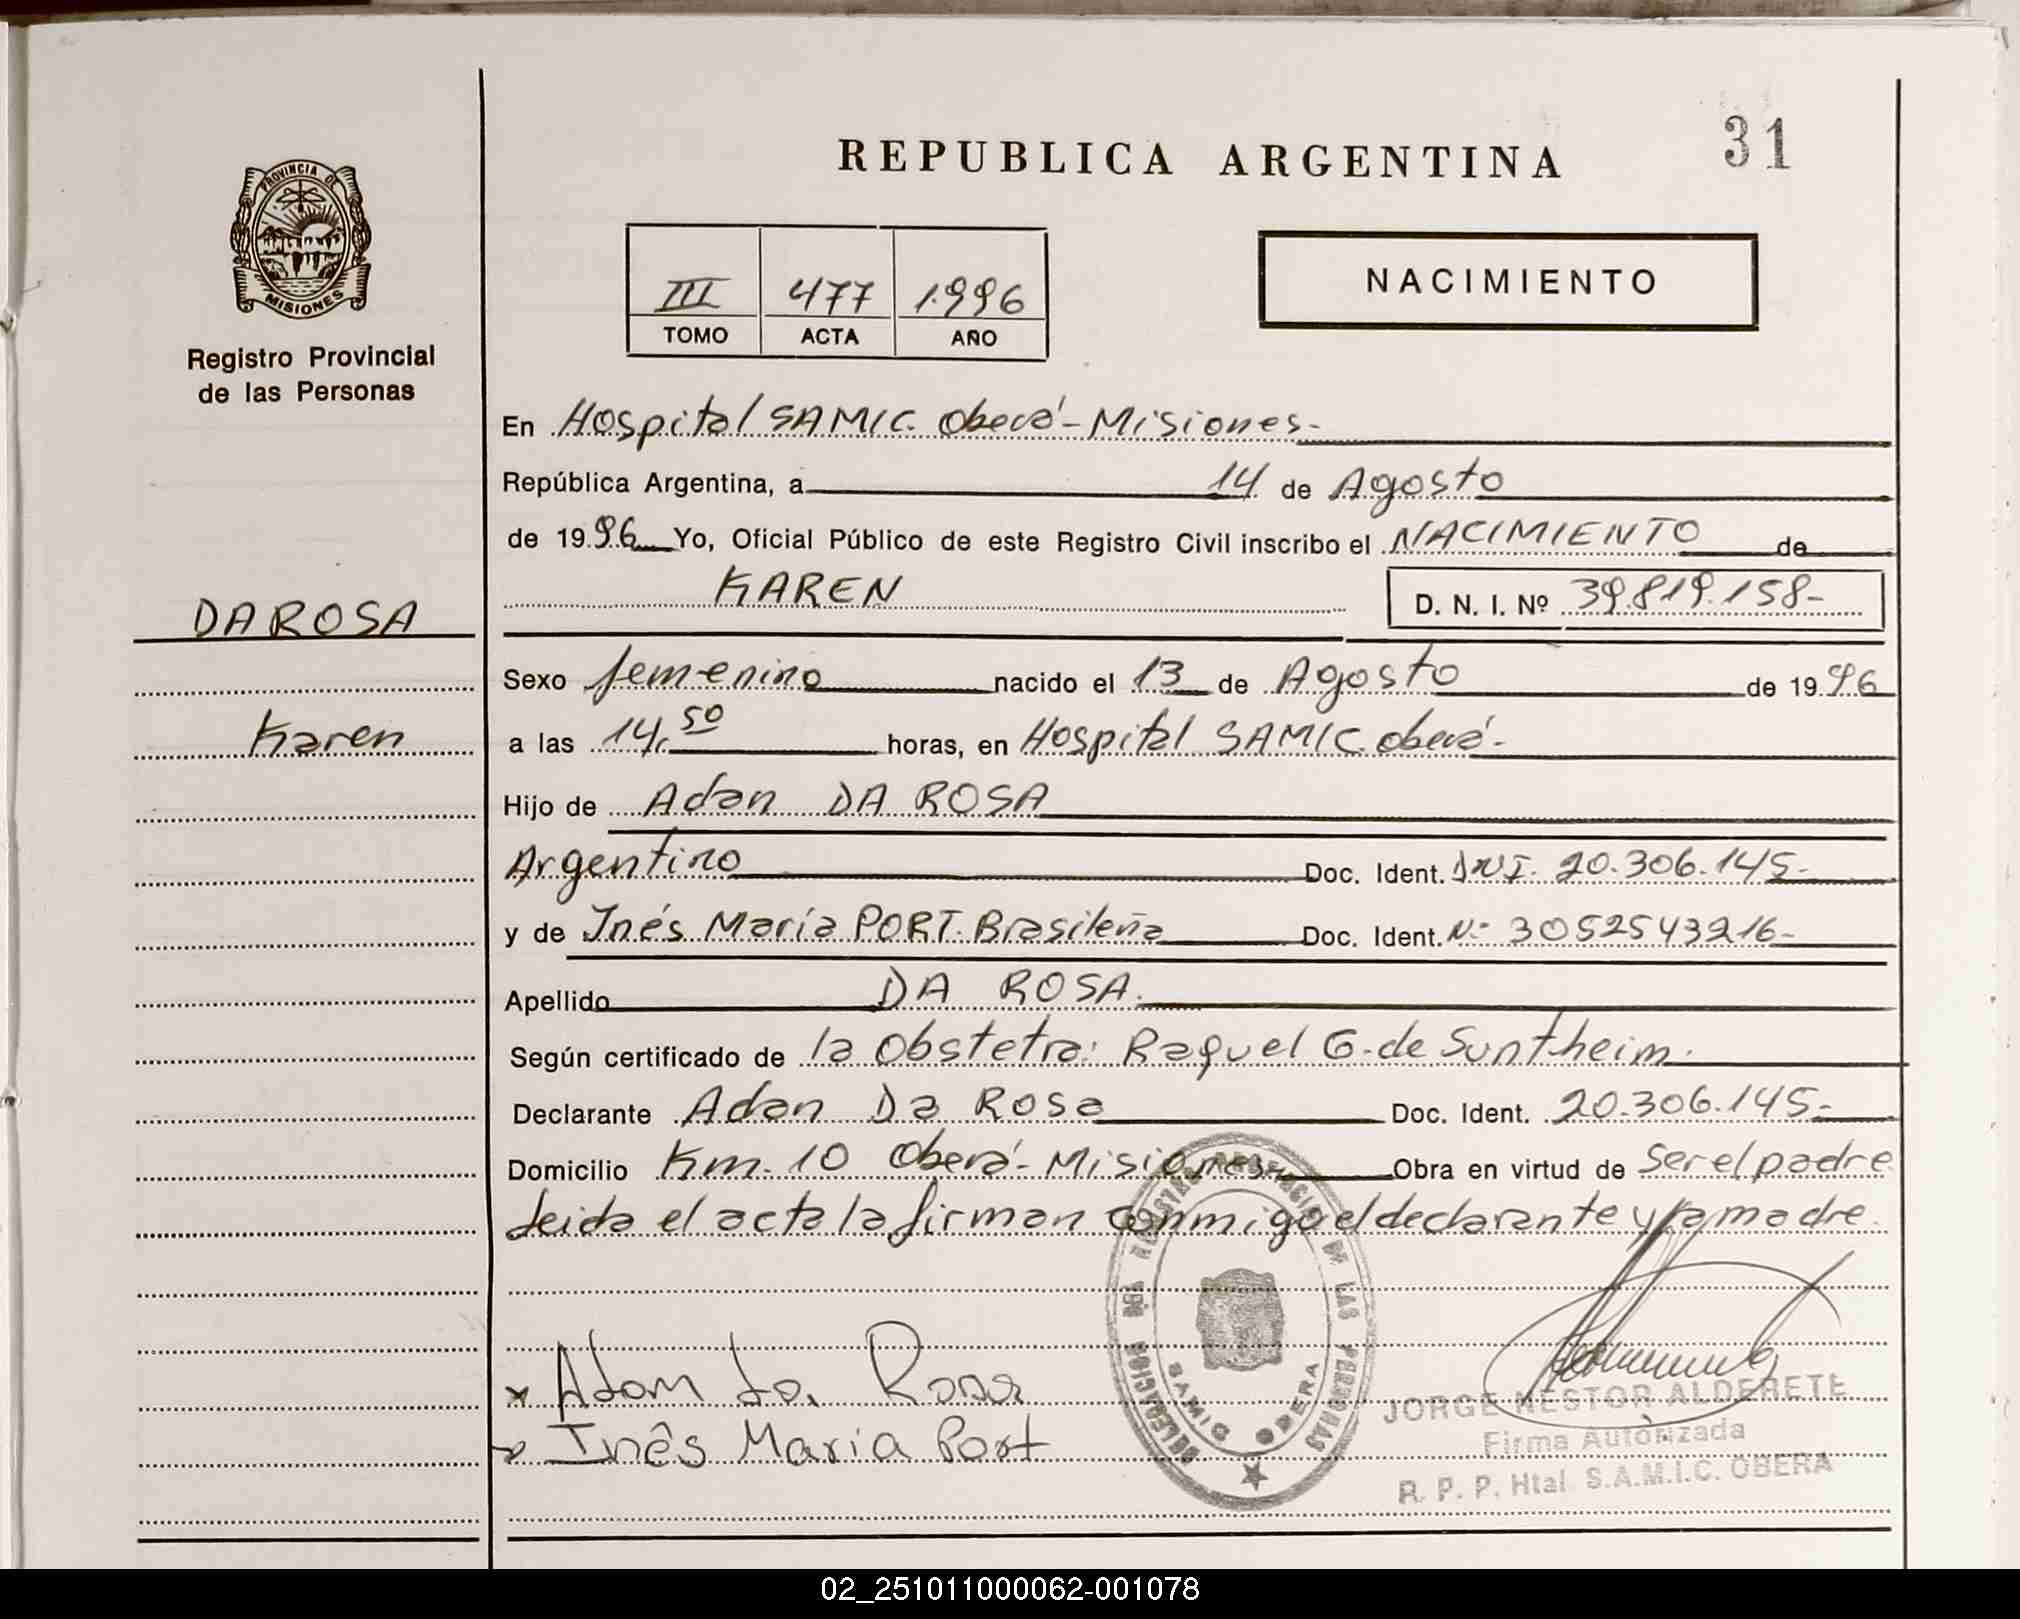 REPUBLICA ARGENTINA
31
PROVINCIA DE
MISIONES
Registro Provincial
de las Personas
III 477 1.996
TOMO ACTA AÑO
NACIMIENTO
En Hospital SAMIC. Oberá - Misiones.-
República Argentina, a 14 de Agosto
de 1996 Yo, Oficial Público de este Registro Civil inscribo el NACIMIENTO de
KAREN D. N. I. Nº 39.819.158-
DA ROSA
Sexo femenino nacido el 13 de Agosto de 1996
Karen
a las 14,50 horas, en Hospital SAMIC. Oberá.-
Hijo de Adan DA ROSA
Argentino Doc. Ident. DNI. 20.306.145-
y de Inés María PORT. Brasileña Doc. Ident. Nº 3052543216-
Apellido DA ROSA.
Según certificado de la Obstetra: Raquel G. de Suntheim.
Declarante Adan Da Rosa Doc. Ident. 20.306.145-
Domicilio Km. 10 Oberá - Misiones Obra en virtud de Ser el padre
Leida el acta la firman conmigo el declarante y la madre.
x Adam da Rosa
x Inês Maria Port
DELEGACION DEL REGISTRO PROVINCIAL DE LAS PERSONAS
SAMIC OBERA
JORGE NESTOR ALDERETE
Firma Autorizada
R. P. P. Htal. S.A.M.I.C. OBERA
02_251011000062-001078